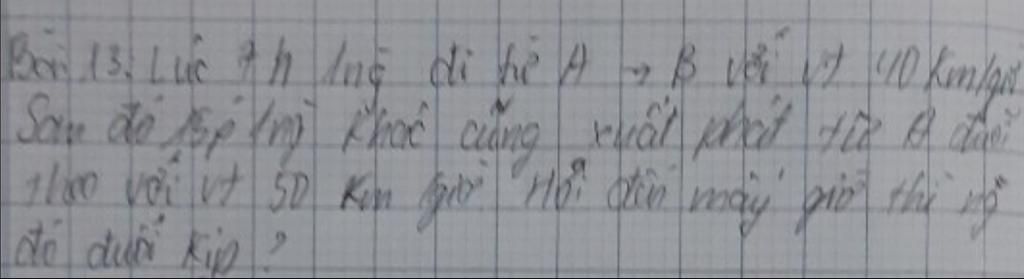 Bài 13. Lúc 7h 1ng đi từ A → B với vt 40 km/giờ
Sau đó 15p 1ng khác cũng xuất phát từ A đuổi
theo với vt 50 km giờ Hỏi đến mấy giờ thì ng
đó đuổi kịp?